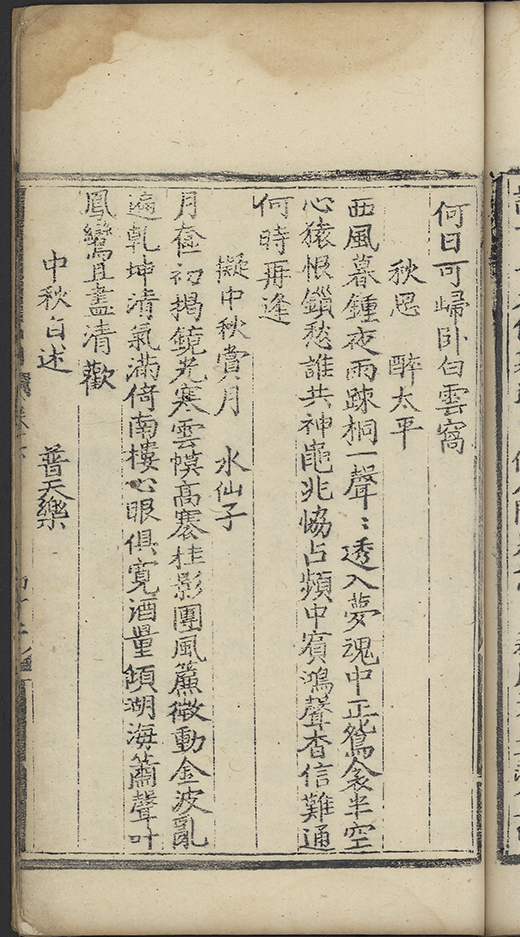 何日可歸卧白雲窩
秋思 醉太平
西風暮鍾夜雨踈桐一聲〻透入夢魂中正鴛衾半空
心猿恨鎖愁誰共神龜兆恊占頻中賓鴻聲杳信難通
何時再逢
擬中秋賞月 水仙子
月奩初揭鏡光寒雲幙高褰桂影團風簾微動金波亂
遍乾坤清氣滿倚南樓心眼俱寬酒量傾湖海簫聲叶
鳳鸞且盡清歡
中秋自述 普天樂